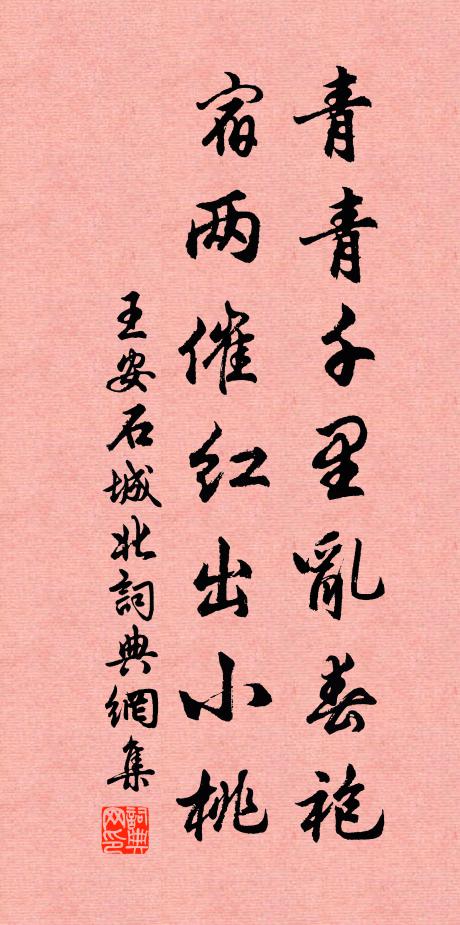 青青千里亂春袍
宿雨催紅出小桃
王安石城北詞典網集
詞典网印